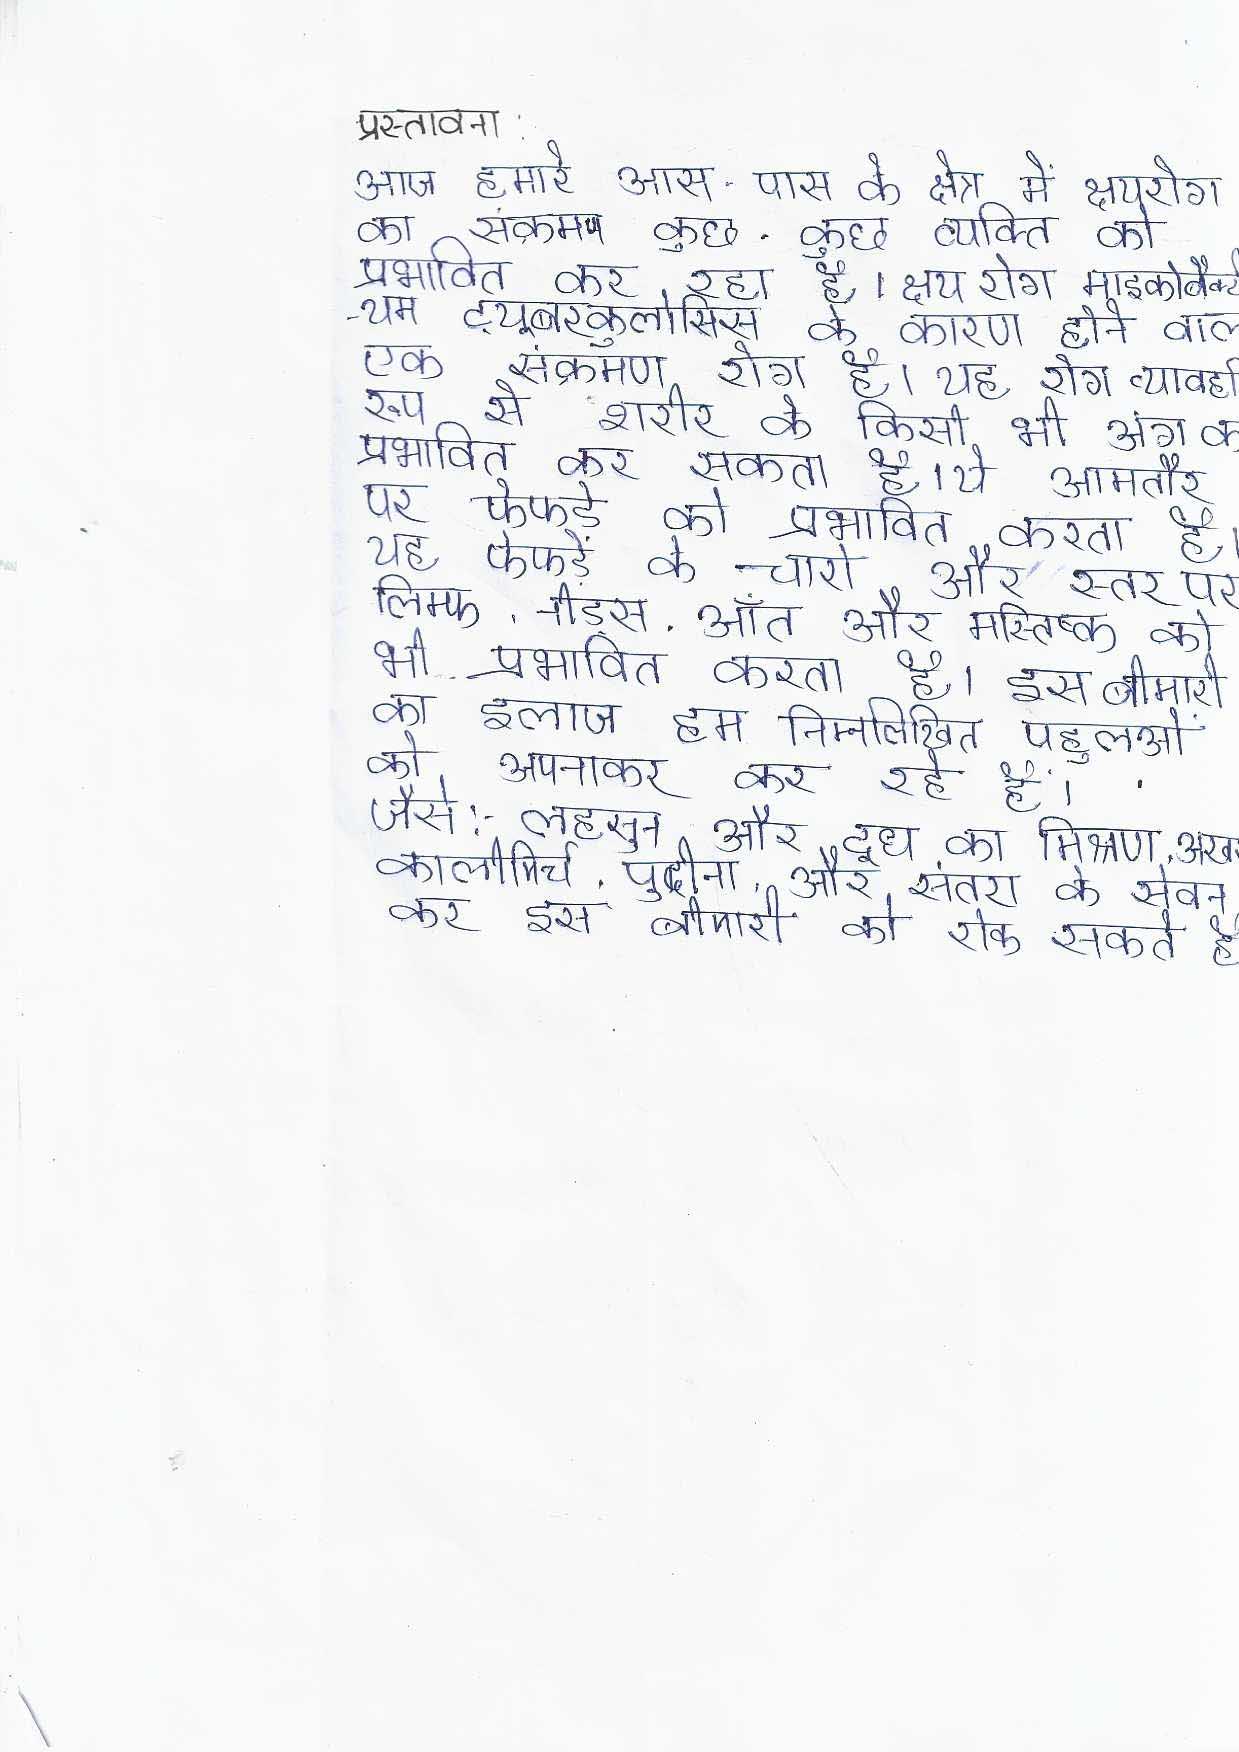 प्रस्तावना :
आज हमारे आस-पास के क्षेत्र में क्षयरोग
का संक्रमण कुछ-कुछ व्यक्ति को
प्रभावित कर रहा है। क्षय रोग माइकोबैक्टे
-यम ट्यूबरकुलोसिस के कारण होने वाल
एक संक्रमण रोग है। यह रोग व्यावहा
रूप से शरीर के किसी भी अंग क
प्रभावित कर सकता है। ये आमतौर
पर फेफड़े को प्रभावित करता है।
यह फेफड़ें के चारो और स्तर पर
लिम्फ, नीड्स, आँत और मस्तिष्क को
भी प्रभावित करता है। इस बीमारी
का इलाज हम निम्नलिखित पहुलओं
को अपनाकर कर रहे हैं।
जैसे:- लहसुन और दूध का मिश्रण, अख
कालीमिर्च, पुदीना, और संतरा के सेवन
कर इस बीमारी को रोक सकते है